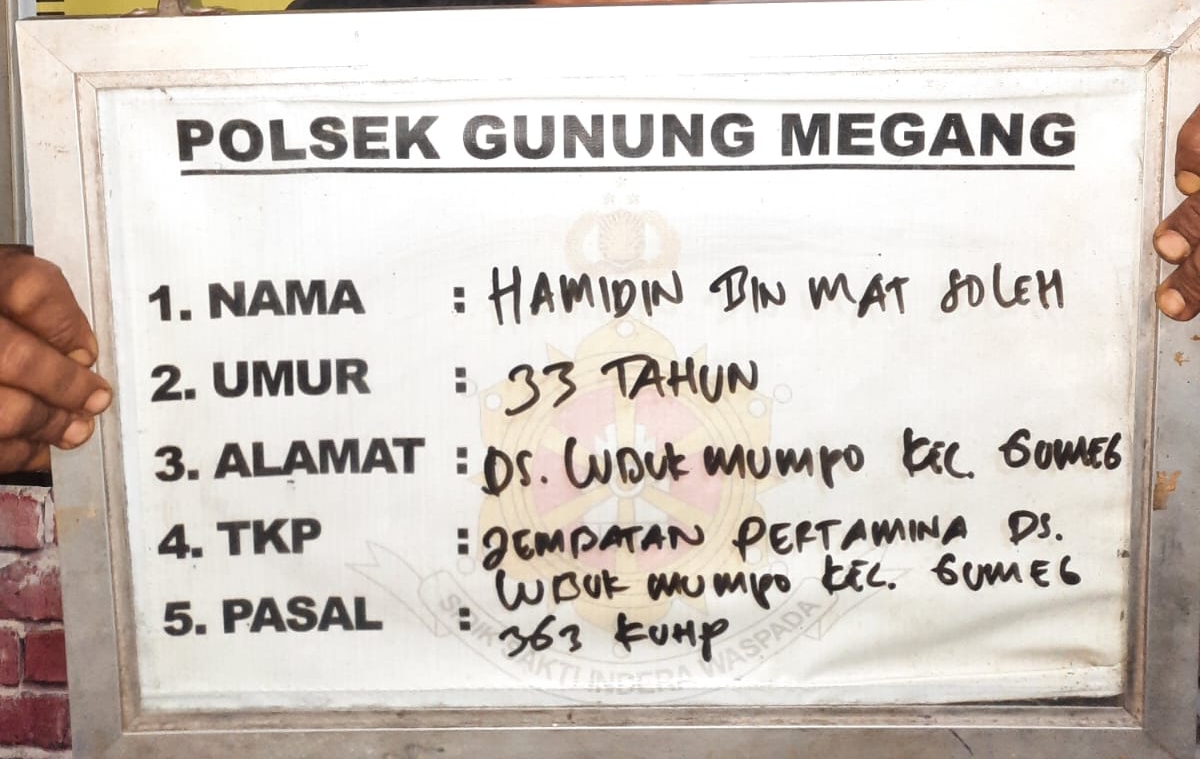 POLSEK GUNUNG MEGANG
1. NAMA : HAMIDIN BIN MAT SOLEH
2. UMUR : 33 TAHUN
3. ALAMAT : DS. LUBUK MUMPO KEC. GUMEG
4. TKP : JEMBATAN PERTAMINA DS.
LUBUK MUMPO KEC. GUMEG
5. PASAL : 363 KUHP
SIDIK SAKTI INDERA WASPADA